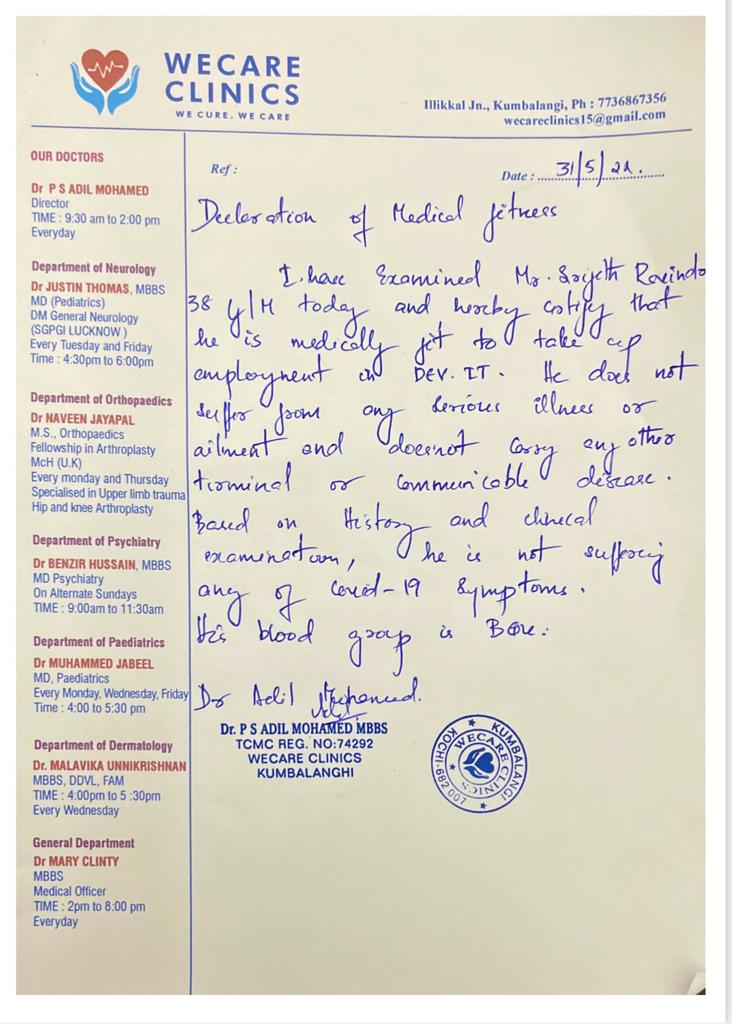 WECARE
CLINICS
WE CURE. WE CARE
Illikkal Jn., Kumbalangi, Ph : 7736867356
wecareclinics15@gmail.com
OUR DOCTORS
Dr P S ADIL MOHAMED
Director
TIME : 9:30 am to 2:00 pm
Everyday
Department of Neurology
Dr JUSTIN THOMAS, MBBS
MD (Pediatrics)
DM General Neurology
(SGPGI LUCKNOW )
Every Tuesday and Friday
Time : 4:30pm to 6:00pm
Department of Orthopaedics
Dr NAVEEN JAYAPAL
M.S., Orthopaedics
Fellowship in Arthroplasty
McH (U.K)
Every monday and Thursday
Specialised in Upper limb trauma
Hip and knee Arthroplasty
Department of Psychiatry
Dr BENZIR HUSSAIN, MBBS
MD Psychiatry
On Alternate Sundays
TIME : 9:00am to 11:30am
Department of Paediatrics
Dr MUHAMMED JABEEL
MD, Paediatrics
Every Monday, Wednesday, Friday
Time : 4:00 to 5:30 pm
Department of Dermatology
Dr. MALAVIKA UNNIKRISHNAN
MBBS, DDVL, FAM
TIME : 4:00pm to 5 :30pm
Every Wednesday
General Department
Dr MARY CLINTY
MBBS
Medical Officer
TIME : 2pm to 8:00 pm
Everyday
Ref :
Date : 31/5/21.
Declaration of Medical fitness
I have Examined Mr. Srijith Ravindr
38 y/M today and hereby certify that
he is medically fit to take up
employment in DEV. IT. He does not
suffer from any serious illness or
ailment and doesnot carry any other
terminal or communicable disease.
Based on History and clinical
examination, he is not suffering
any of Covid-19 Symptoms.
His blood group is B
Dr Adil Mohamed.
Dr. P S ADIL MOHAMED MBBS
TCMC REG. NO:74292
WECARE CLINICS
KUMBALANGHI
WECARE CLINICS
KUMBALANGI
KOCHI-682 007